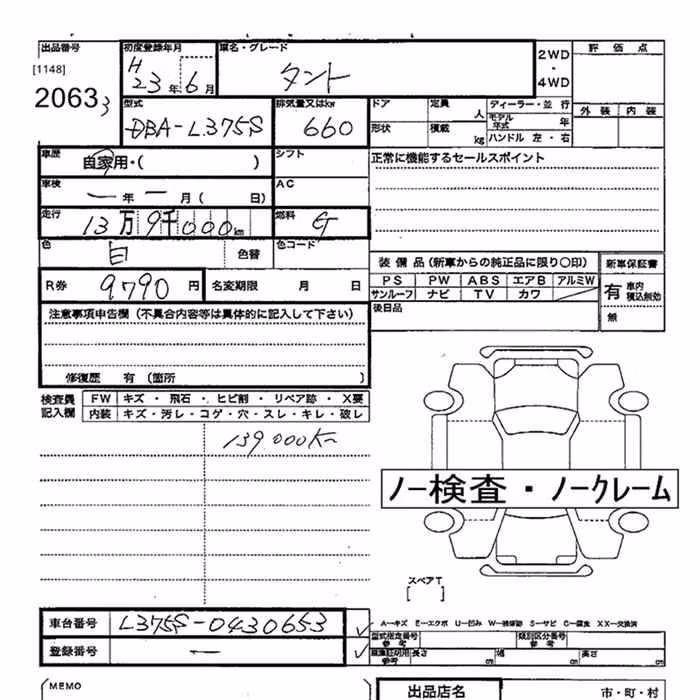 出品番号 初度登録年月 車名・グレード 2WD・4WD 評価点
[1148] H23年6月 タント
20633 外装 内装
型式 排気量又はkw ドア 定員 人 ディーラー・並行
DBA-L375S 660 モデル年式 年
形状 積載 kg ハンドル 左・右
車歴 自家用・( ) シフト 正常に機能するセールスポイント
車検 ー年ー月( 日) AC
走行 13万9千000km 燃料 G
色 白 色替 色コード
装備品(新車からの純正品に限り〇印) 新車保証書
R券 9790円 名変期限 月 日 PS PW ABS エアB アルミW 有 車内積込無効
サンルーフ ナビ TV カワ
注意事項申告欄(不具合内容等は具体的に記入して下さい) 後日品 無
修復歴 有(箇所 )
検査員記入欄 FW キズ・飛石・ヒビ割・リペア跡・X要
内装 キズ・汚レ・コゲ・穴・スレ・キレ・破レ
139000K
ノー検査・ノークレーム
スペアT
[ ]
車台番号 L375S-0430653 A-キズ E-エクボ U-凹み W-補修跡 S-サビ C-腐食 XX-交換済
型式指定番号 参考 類別区分番号 参考
登録番号 ー 参考 長さ cm 幅 cm 高さ cm
MEMO 出品店名 市・町・村